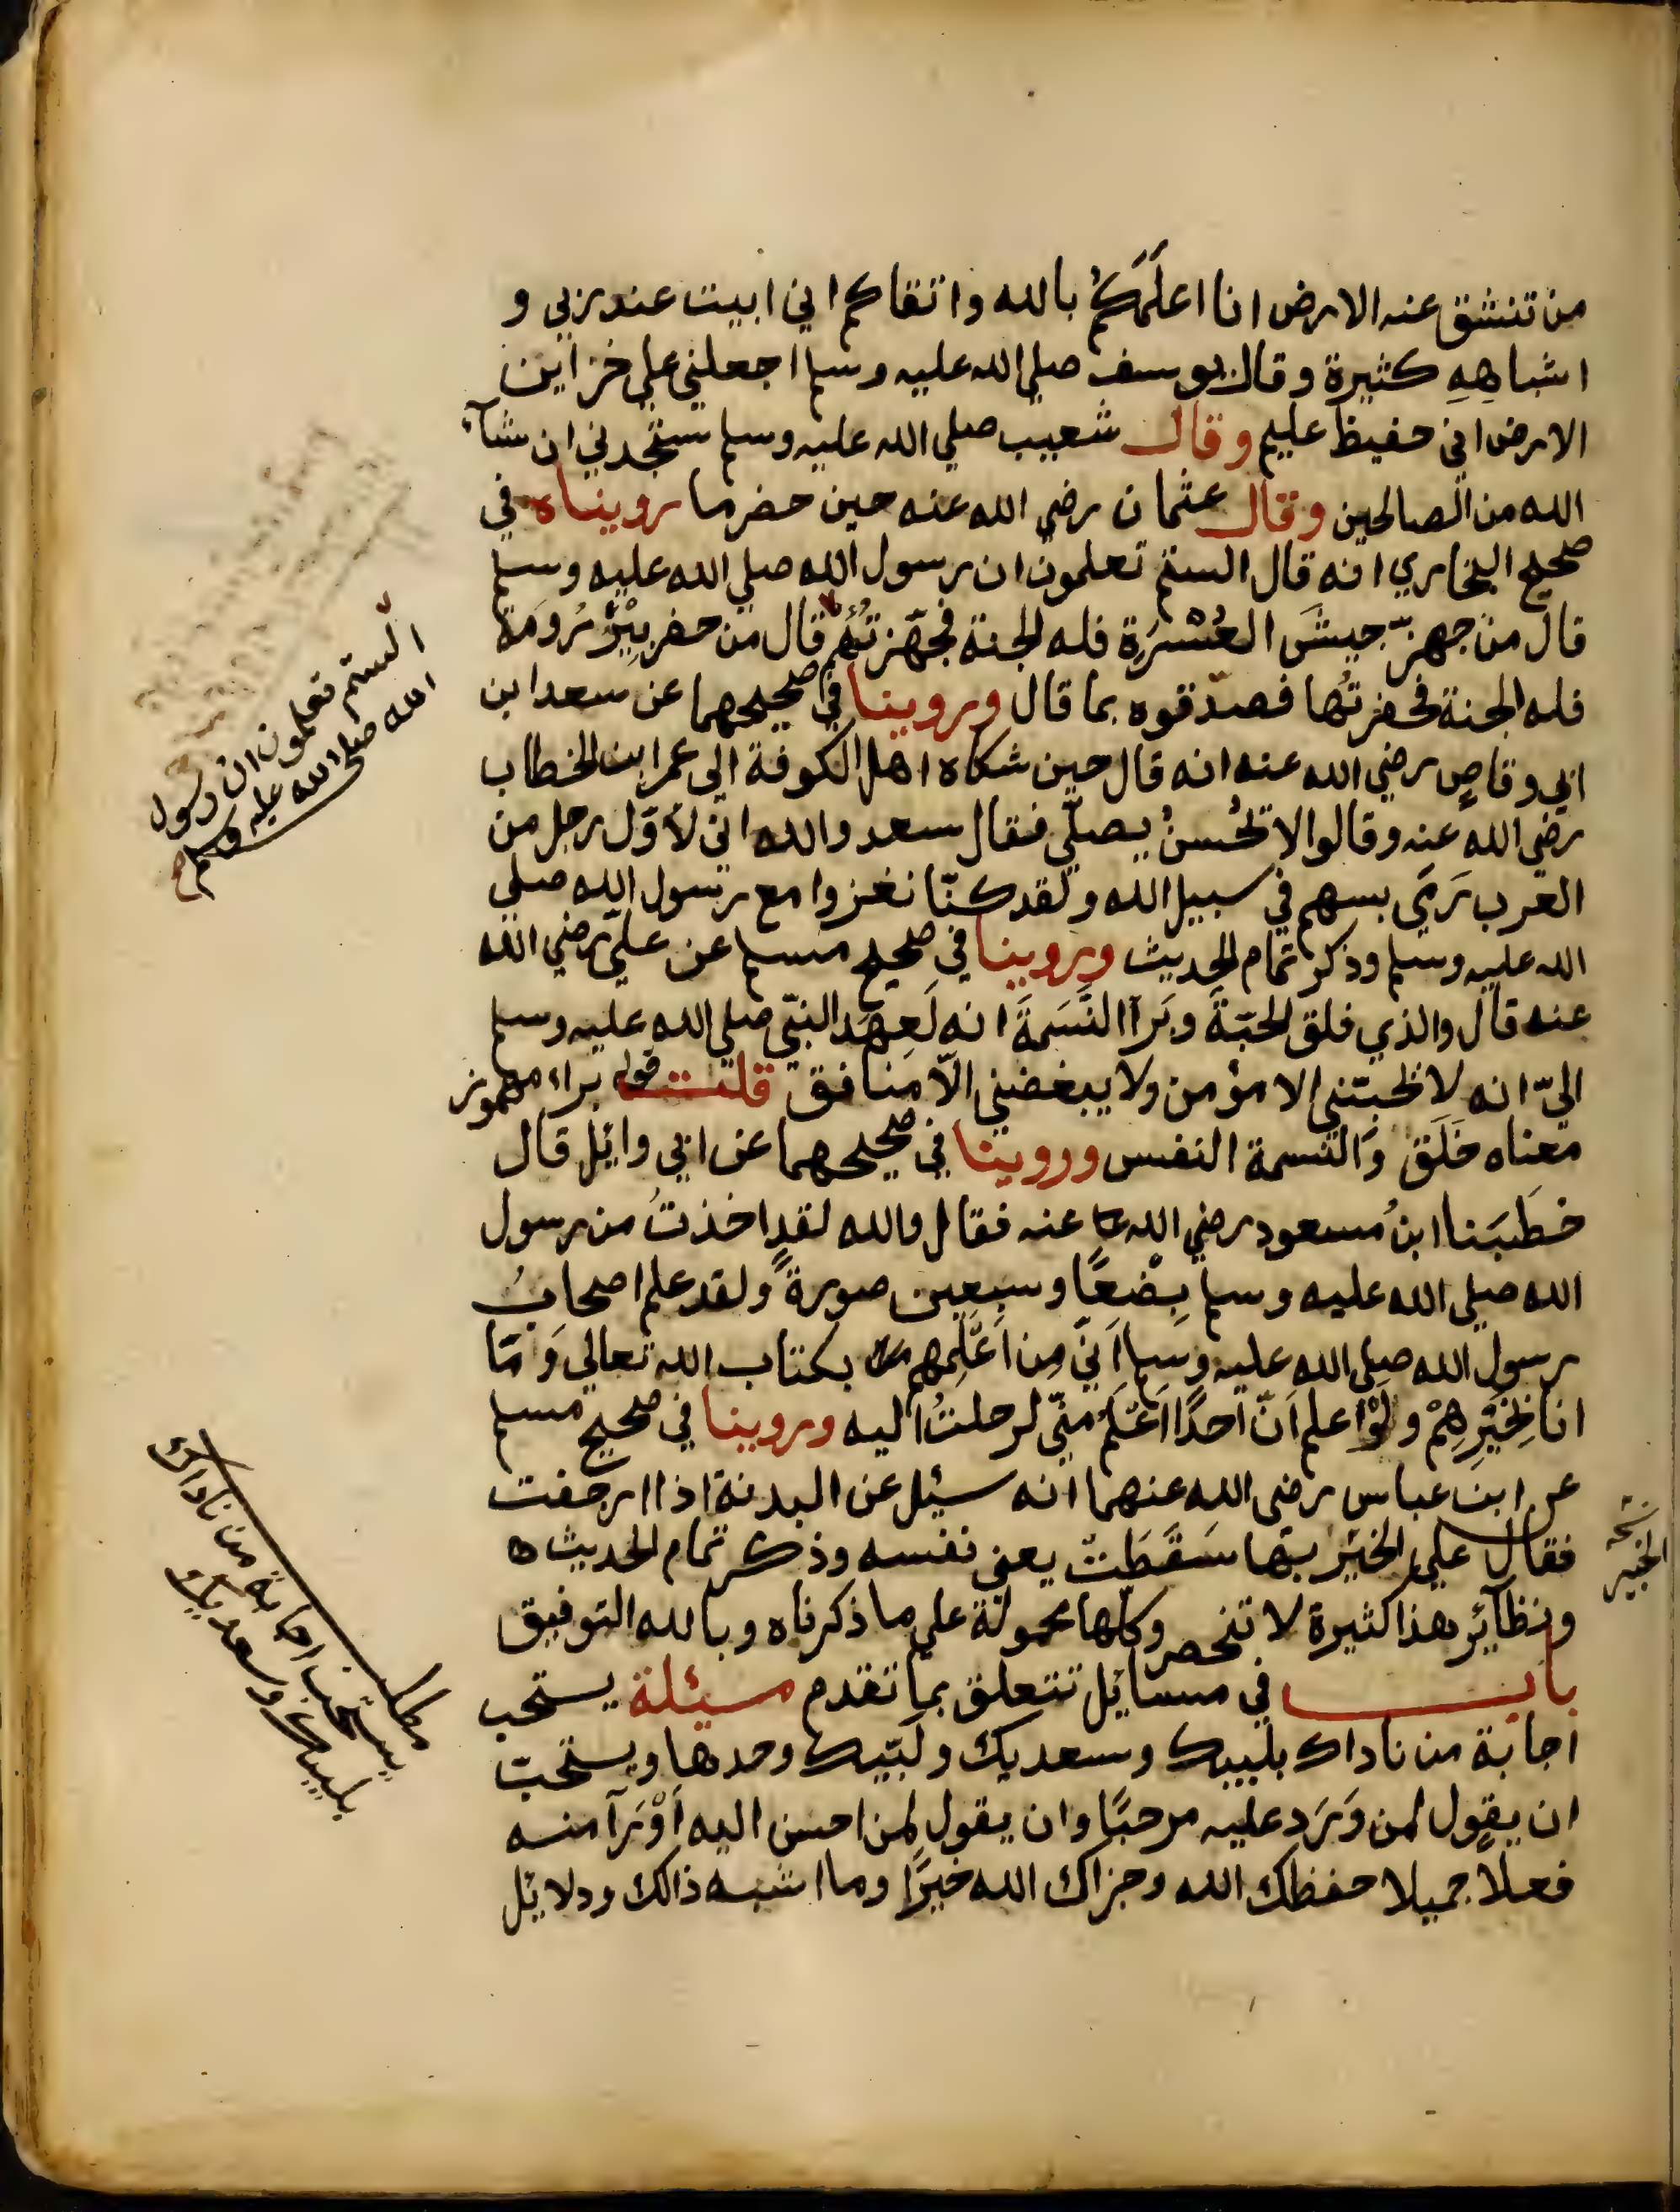 من تنشق عنه الارض انا اعلَمُكُم بالله واتقاكم اني ابيت عند ربي و
اشباهِهِ كثيرة وقال يوسف صلي الله عليه وسلم اجعلني علي خزاين
الارض اني حفيظ عليم وقال شعيب صلي الله عليه وسلم ستجدني ان شآء
الله من الصالحين وقال عثمان رضي الله عنه حين حضر ما رويناه في
صحيح البخاري انه قال الستم تعلمون ان رسول الله صلي الله عليه وسلم
قال من جهزّ جيشَ العُسْرَةِ فله الجنة فجهّزتُهُم قال من حفر بِيْرَ رُومَة
فله الجنة فحفرتُها فصدّقوه بما قال وروينا في صحيحهما عن سعد ابن
ابي وقاصٍ رضي الله عنه انه قال حين شكاه اهل الكوفة الي عمر ابن الخطاب
رضي الله عنه وقالوا لا يُحْسنُ يصلّي فقال سعد والله انّي لأوّل رجل من
العرب رَمَي بسهم في سبيل الله ولقد كنّا نغزوا مع رسول الله صلي
الله عليه وسلم وذكر تمام الحديث وروينا في صحيح مسلم عن عليّ رضي الله
عنه قال والذي فلق الحبّةَ وبَرَآ النَّسَمةَ انه لَعِهَد النبّي صلي الله عليه وسلم
اليّ انه لا يحبّني الا مؤمن ولا يبغضني الاّ منافق قلت قوله براء مهموز
معناه خَلَقَ والنسمة النفس وروينا في صحيحهما عن ابي وائِل قال
خطَبَنا ابنُ مسعود رضي الله عنه فقال والله لقد اخذتُ من رسول
الله صلي الله عليه وسلم بِضْعًا وسبعين صورةً ولقد علم اصحابُ
رسول الله صلي الله عليه وسلم اَنّي مِن اَعْلَمِهم بكتاب الله تعالي وَمَا
انا بِخَيْرِهِمْ ولوْ اعلم اَنّ احدًا اَعْلَمُ منّي لرحلتُ اليه وروينا في صحيح مسلم
عن ابن عباس رضي الله عنهما انه سئِل عن البدنة اذا ارجفت
فقال علي الخبْيرِ بها سَقَطَتْ يعني نفسه وذكر تمام الحديث ه
ونظآئِر هذا كثيرة لا تنحصر وكلّها محمولة علي ما ذكرناه وبالله التوفيق
باب في مسائِل تتعلق بما تقدم مسئلة يستحب
اجابة من ناداك بلبيك وسعديك ولبّيك وحدها ويستحبّ
ان يقول لمن وَرَد عليه مرحبًا وان يقول لمن احسن اليه اَوْ رَآ منه
فعلًا جميلا حفظك الله وجزاك الله خيرًا وما اشبه ذالك ودلائل
الستم تعلمون ان رسول
الله صلى الله عليه وسلم
نسخه
الخبير
مطلب
يستحب اجابة من ناداك
بلبيك وسعديك